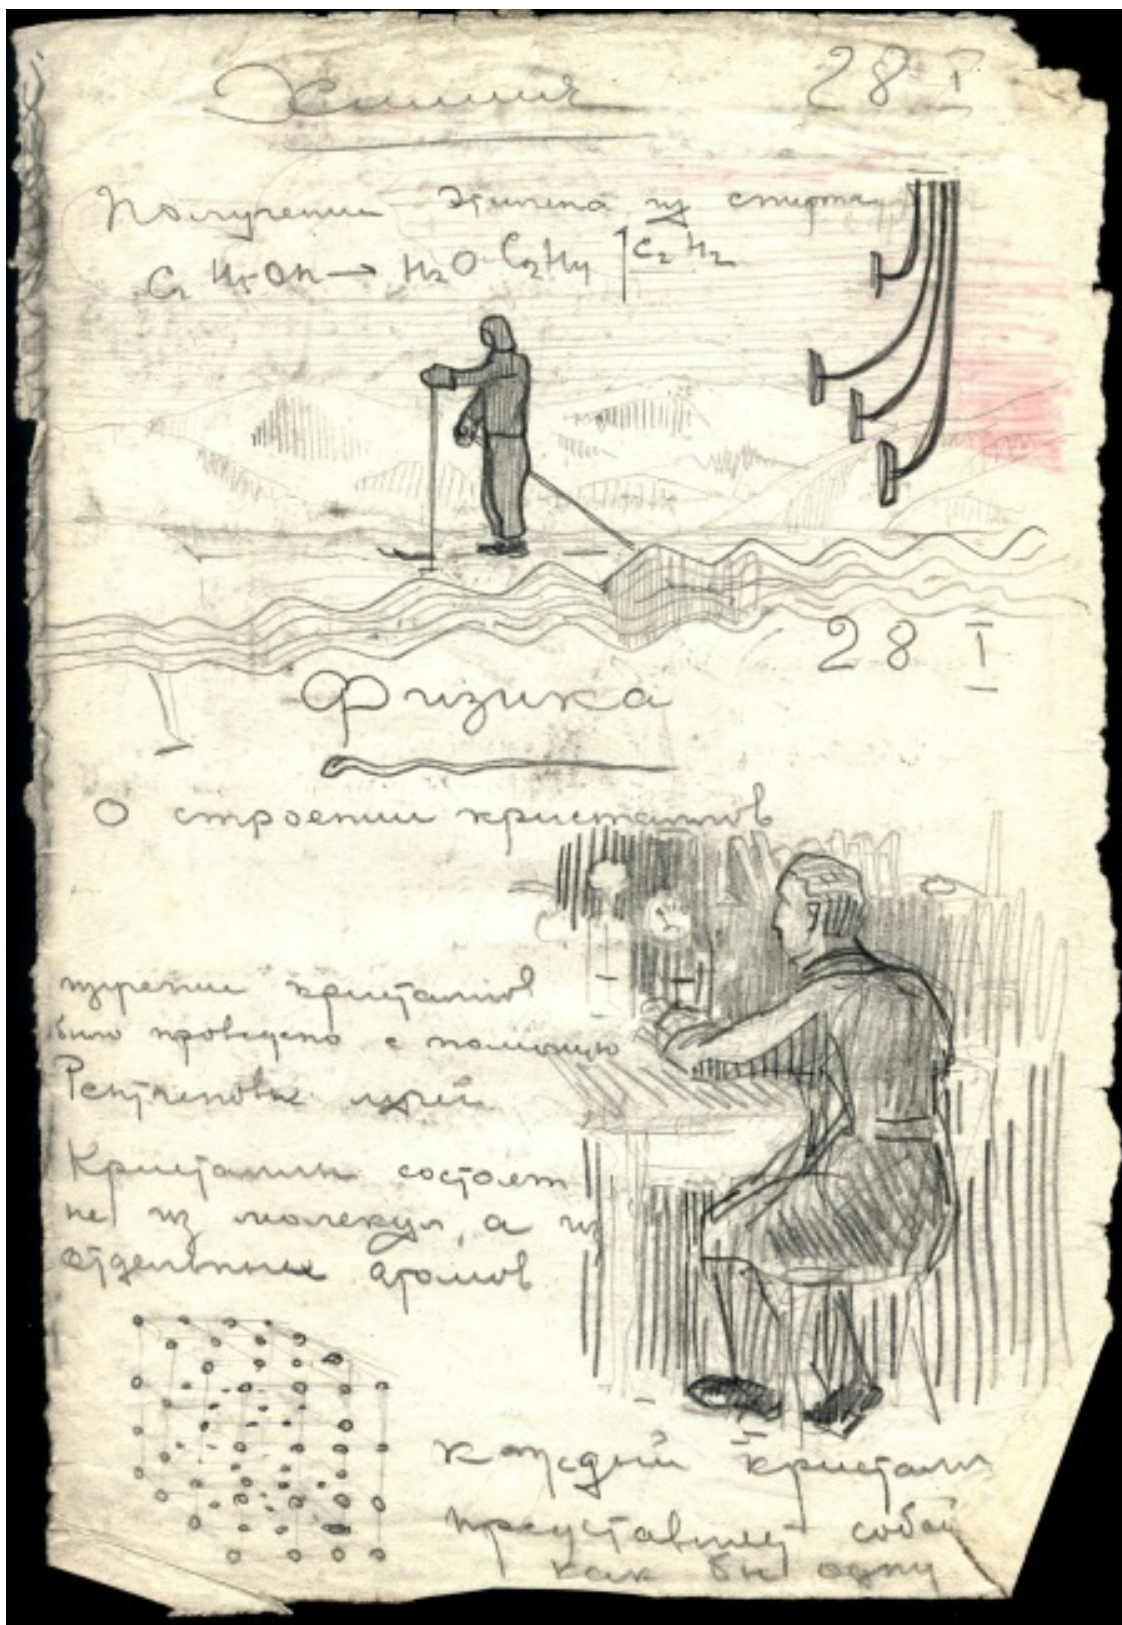 Химия 28 I
Получение этилена из спирта
C2H5OH → H2O C2H4 | C2H2
28 I
Физика
О строении кристаллов
изучение кристаллов
было проведено с помощью
Рентгеновых лучей
Кристаллы состоят
не из молекул, а из
отдельных атомов
каждый кристалл
представляет собой
как бы одну